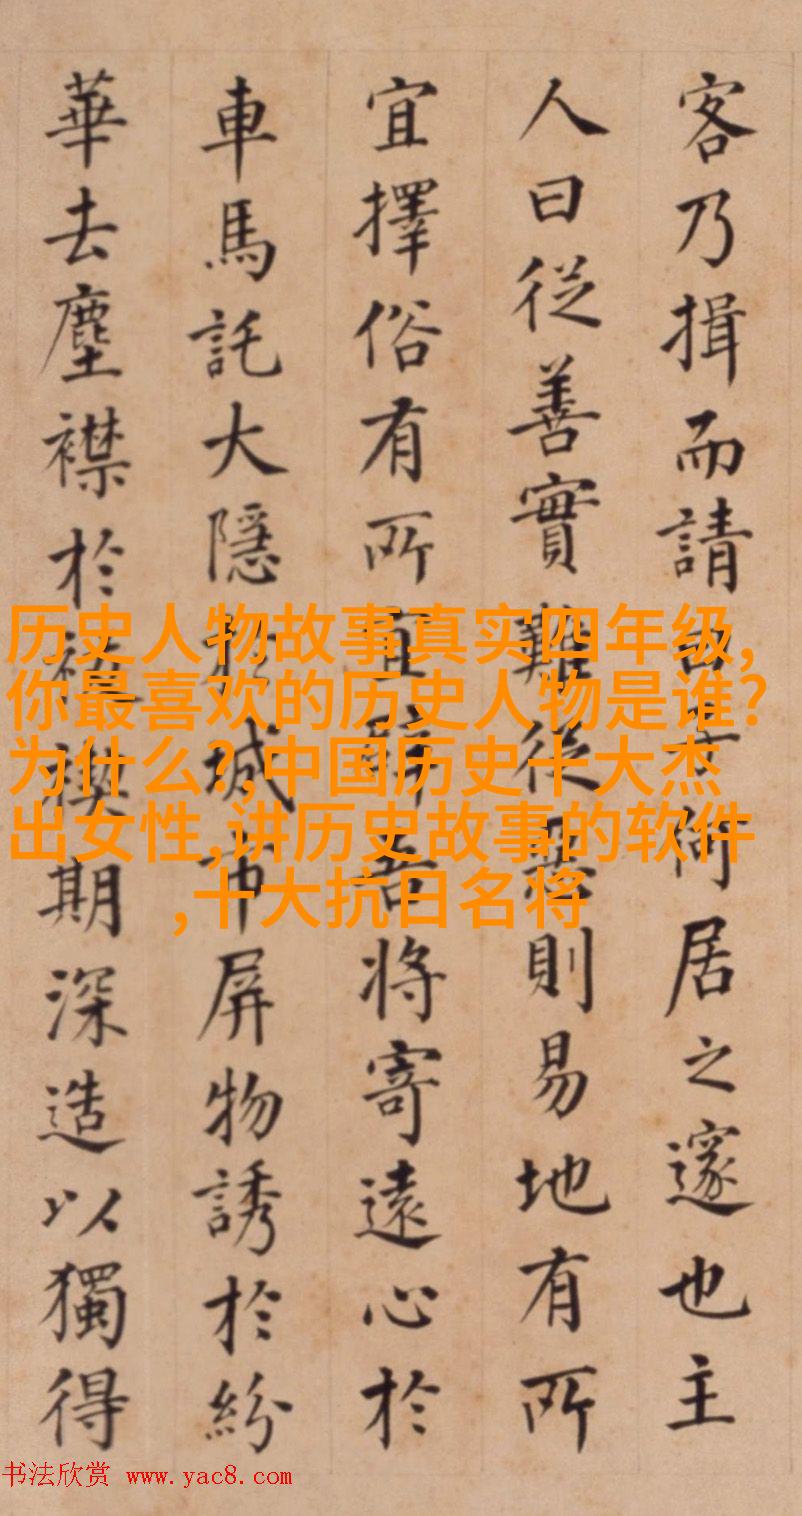 客乃揖而請何居之邃也主
人曰從善實難從則易地有所
宜擇俗有所宜吾將寄遠心於
車馬託大隱於城市屏物誘於紛
華去塵襟於期深造以獨得
历史人物故事真实四年级,
你最喜欢的历史人物是谁?
为什么?,中国历史十大杰
出女性,讲历史故事的软件
,十大抗日名将
书法欣赏 www.yac8.com